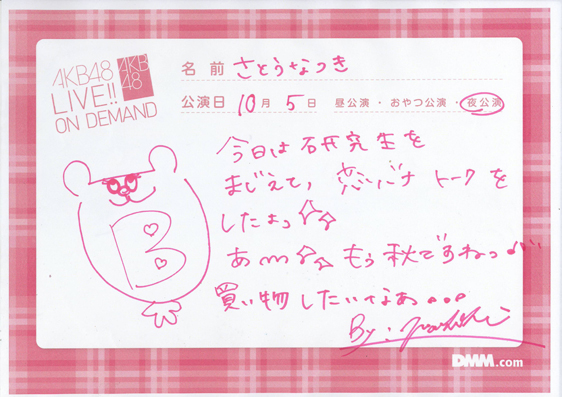 AKB48
LIVE!!
ON DEMAND
AKB
48
名前 さとうなつき
公演日 10月5日 昼公演・おやつ公演・夜公演
今日は研究生を
まじえて、恋バナトークを
したよっ☆☆
あm☆☆もう秋ですねっ♪
買い物したいなぁ...
B
By:
DMM.com